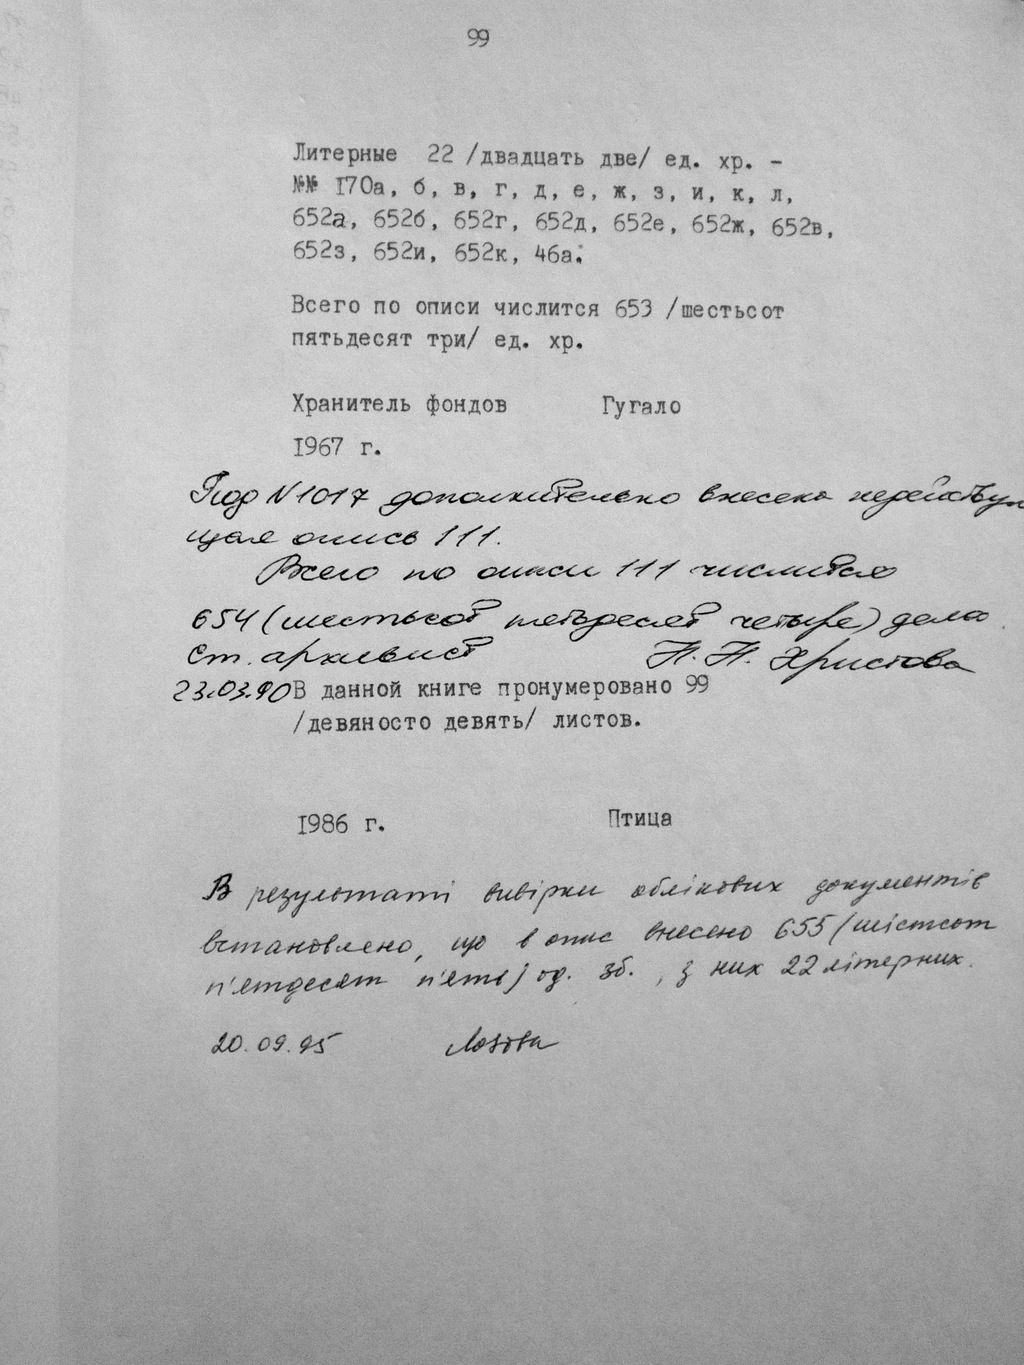 99
Литерные 22 /двадцать две/ ед. хр. -
№№ 170а, б, в, г, д, е, ж, з, и, к, л,
652а, 652б, 652г, 652д, 652е, 652ж, 652в,
652з, 652и, 652к, 46а.
Всего по описи числится 653 /шестьсот
пятьдесят три/ ед. хр.
Хранитель фондов Гугало
1967 г.
Под N 1017 дополнительно внесена недействую
щая опись 111.
Всего по описи 111 числится
654 (шестьсот пятьдесят четыре) дела.
Ст. архивист Н. Н. Христова
23.03.90 В данной книге пронумеровано 99
/девяносто девять/ листов.
1986 г. Птица
В результаті вивірки облікових документів
встановлено, що в опис внесено 655 (шістсот
п'ятдесят п'ять) од. зб., з них 22 літерних.
20.09.95 Лозова